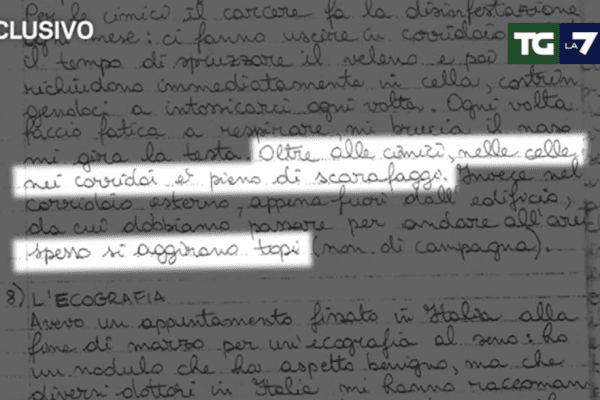 CLUSIVO
TG LA7
Per le cimici il carcere fa la disinfestazione
ogni mese: ci fanno uscire in corridoio
il tempo di spruzzare il veleno e poi
richiudono immediatamente in cella, costrin
gendoci a intossicarci ogni volta. Ogni volta
faccio fatica a respirare, mi brucia il naso
mi gira la testa. Oltre alle cimici, nelle celle
nei corridoi è pieno di scarafaggi. Invece nel
corridoio esterno, appena fuori dall'edificio,
da cui dobbiamo passare per andare all'aria
spesso si aggirano topi (non di campagna).
8) L'ECOGRAFIA
Avevo un appuntamento fissato in Italia alla
fine di marzo per un'ecografia al seno: ho
un nodulo che ha aspetto benigno, ma che
diversi dottori in Italia mi hanno raccoman